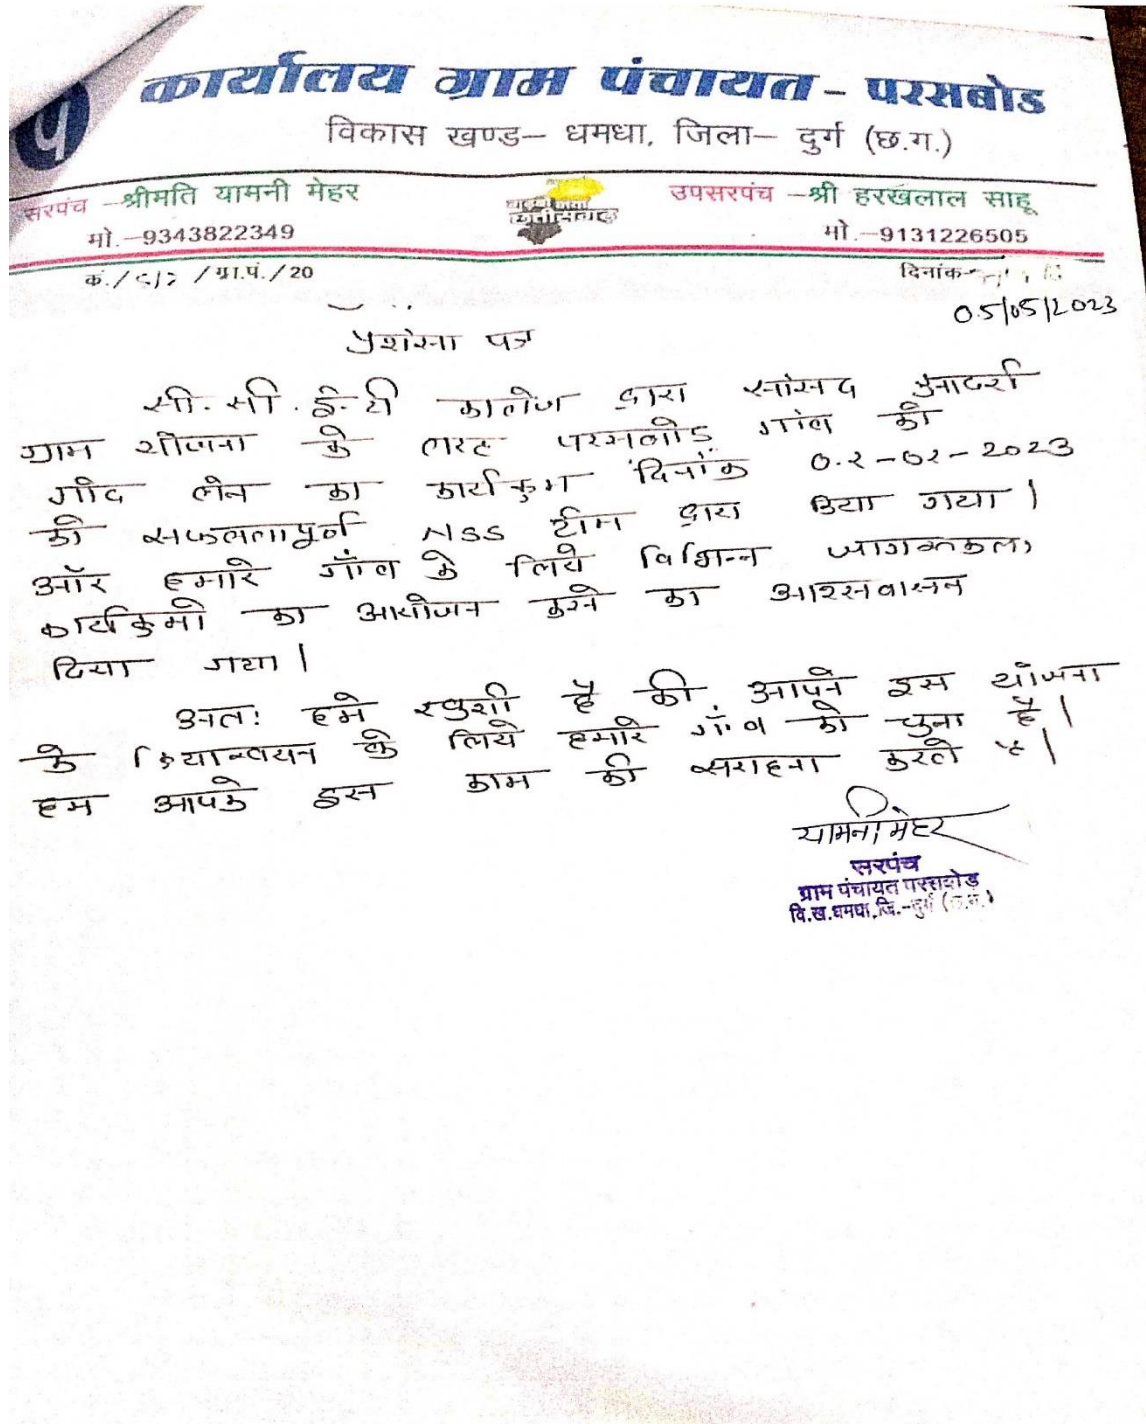 प
कार्यालय ग्राम पंचायत - परसबोड
विकास खण्ड– धमधा, जिला– दुर्ग (छ.ग.)
सरपंच –श्रीमति यामनी मेहर
मो.–9343822349
उपसरपंच –श्री हरखलाल साहू
मो.–9131226505
क्रं./ / ग्रा.पं. / 20
दिनांक-
05/05/2023
प्रशंसा पत्र
सी. सी. ई. टी कालेज द्वारा सांसद आदर्श
ग्राम योजना के तरह परसबोड गांव को
गोद लेन का कार्यक्रम दिनांक 0.2-02-2023
को सफलतापूर्ण NSS टीम द्वारा किया गया।
और हमारे गाँव के लिये विभिन्न
कार्यक्रमो का आयोजन करने का
दिया गया।
अतः हमे खुशी है की आपने इस योजना
के क्रियान्वयन के लिये हमारे गाँव को चुना है।
हम आपके इस काम की सराहना करते है।
यामनी मेहर
सरपंच
ग्राम पंचायत परसबोड
वि.ख.धमधा, जि.-दुर्ग (छ.ग.)